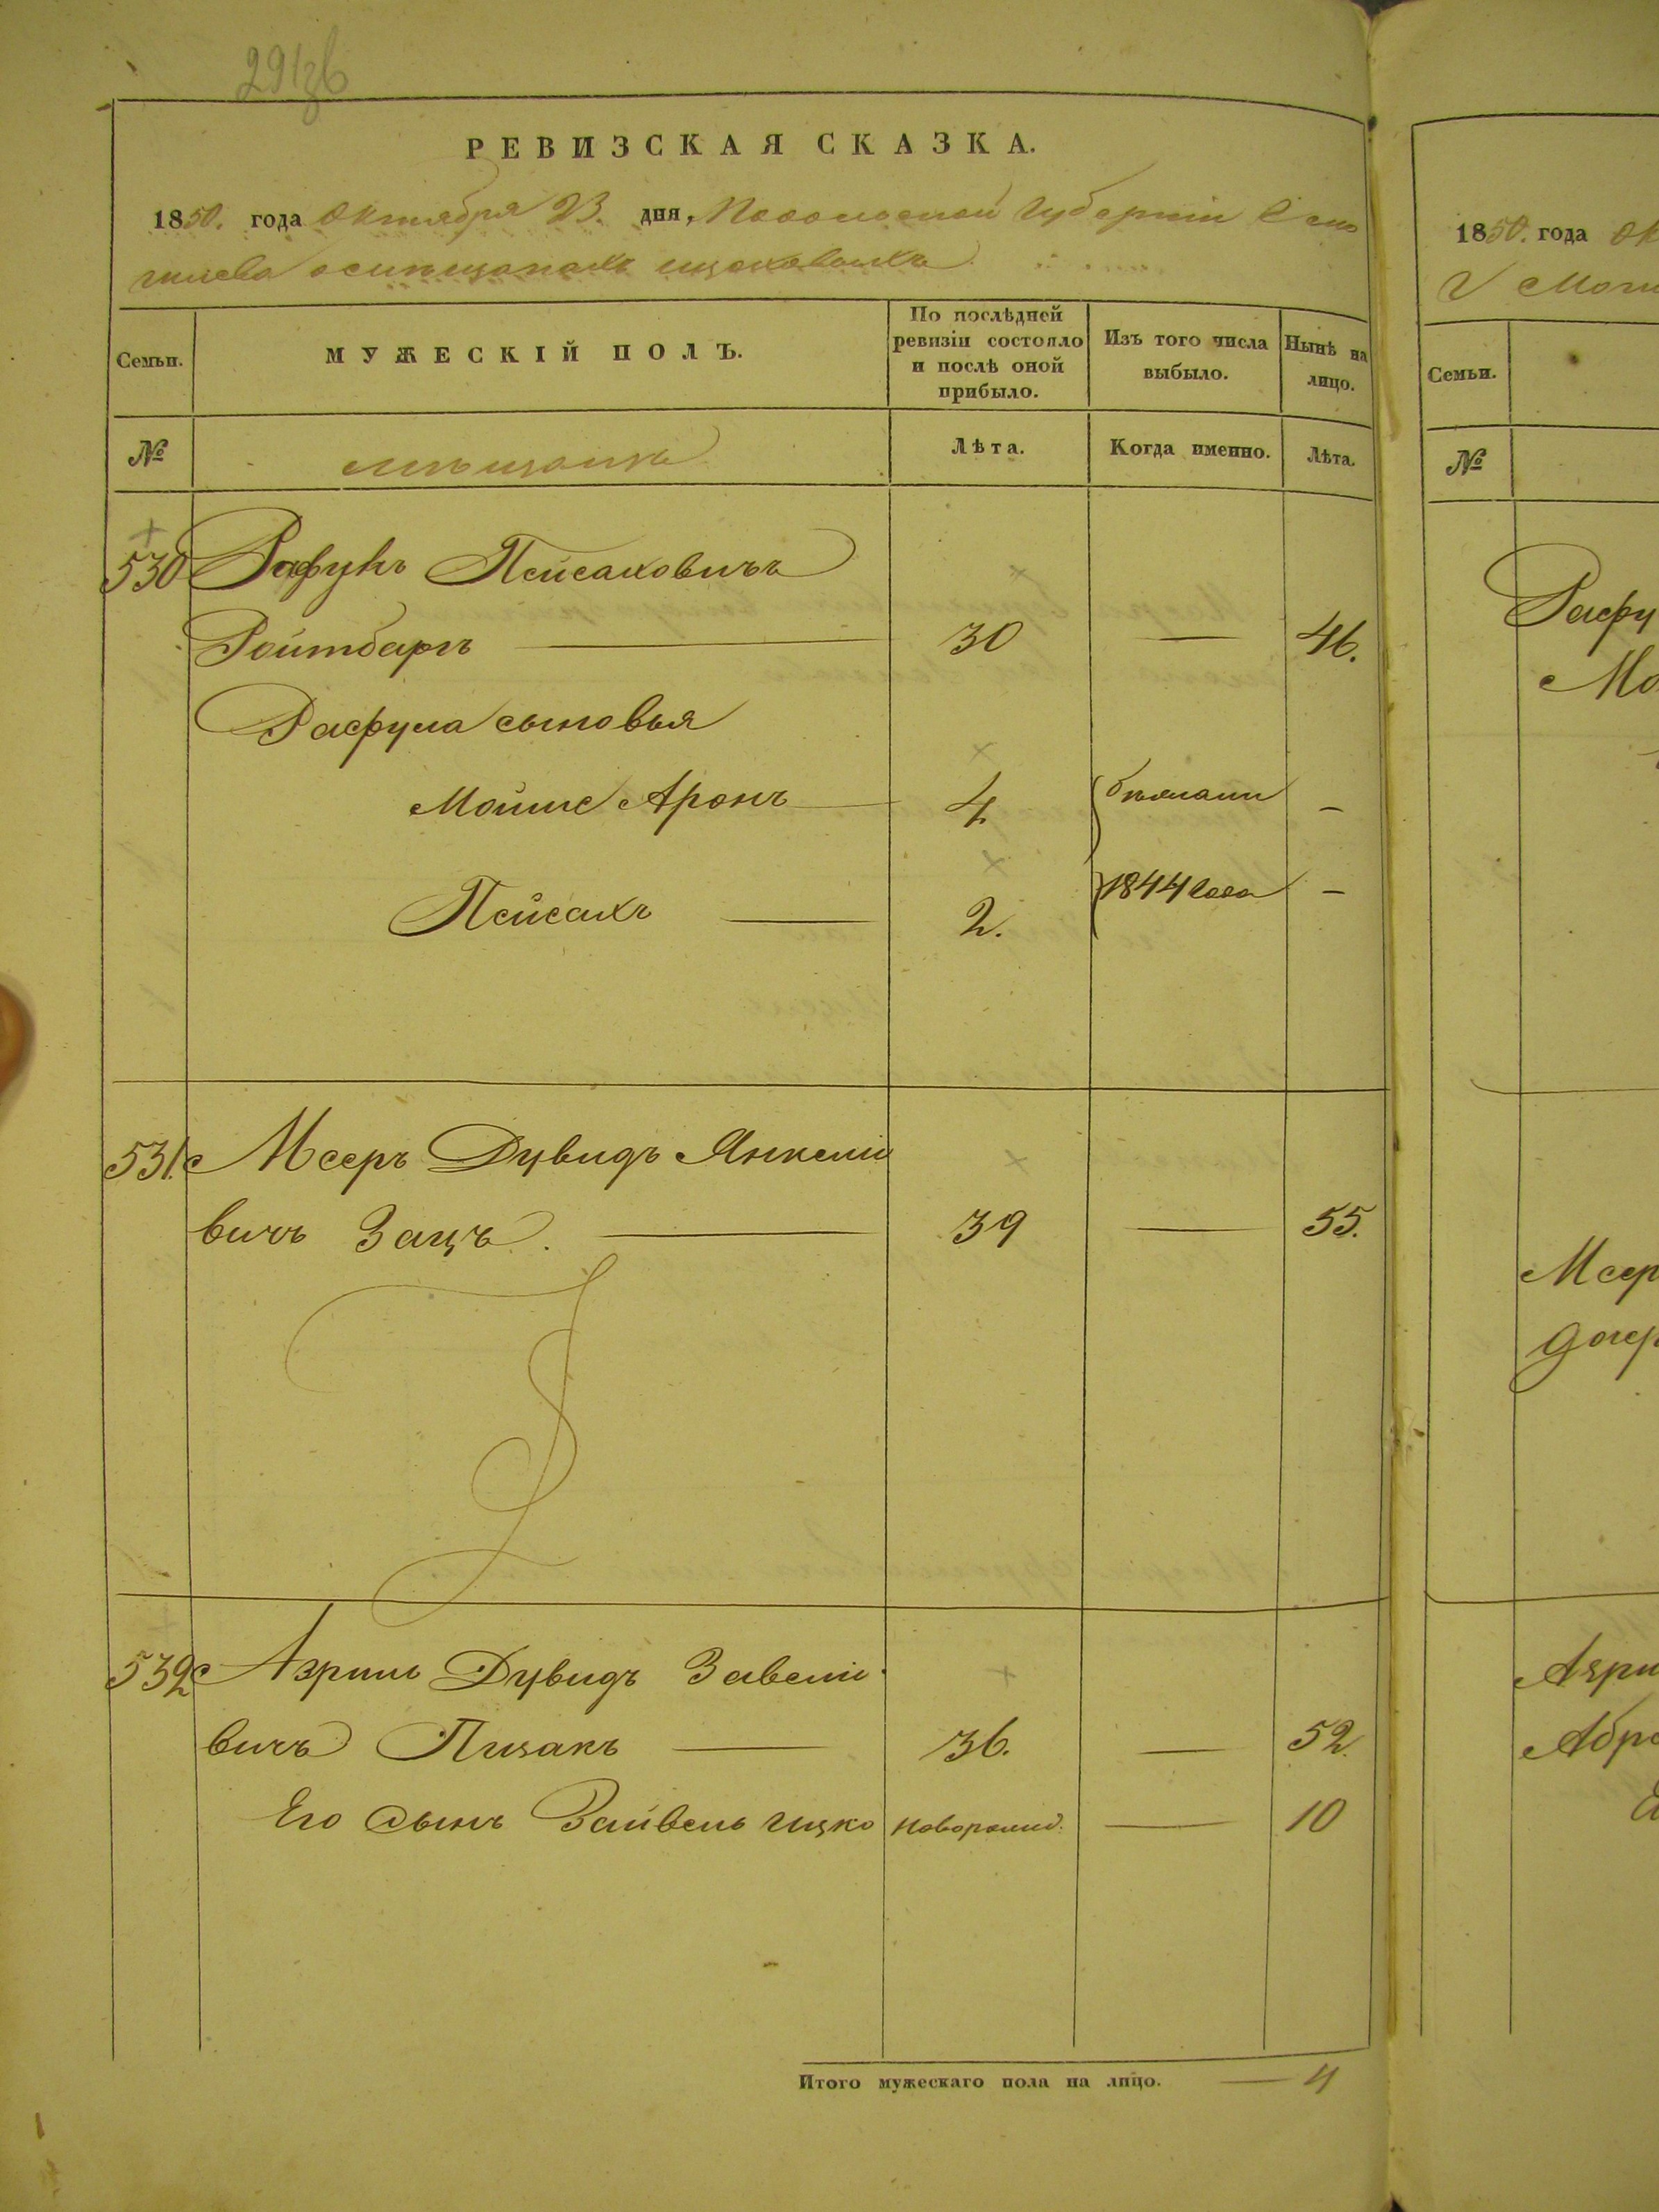 291зв
РЕВИЗСКАЯ СКАЗКА.
1850. года Октября 23. дня, Подольской Губернии Г. Мо
гилева о мѣщанахъ
Семьи.
МУЖЕСКІЙ ПОЛЪ.
По послѣдней ревизіи состояло и послѣ оной прибыло.
Изъ того числа выбыло.
Нынѣ на лицо.
№
мѣщане
Лѣта.
Когда именно.
Лѣта.
530 Рафулъ Пейсаховичъ
Ройтбаргъ 30 — 46.
Рафула сыновья
Мойше Аронъ 4 бѣжали –
Пейсахъ 2. 1844 года –
531. Мееръ Дувидъ Янкели
вичъ Зацъ. 39 — 55.
532 Азриль Дувидъ Завели
вичъ Пизакъ 36. — 52.
Его сынъ Зайвель Ицко новорожд: — 10
Итого мужескаго пола на лицо. — 4
1850. года Ок
Г Моги
Семьи.
№
Рафу
Мо
Меер
дочер
Азри
Абра